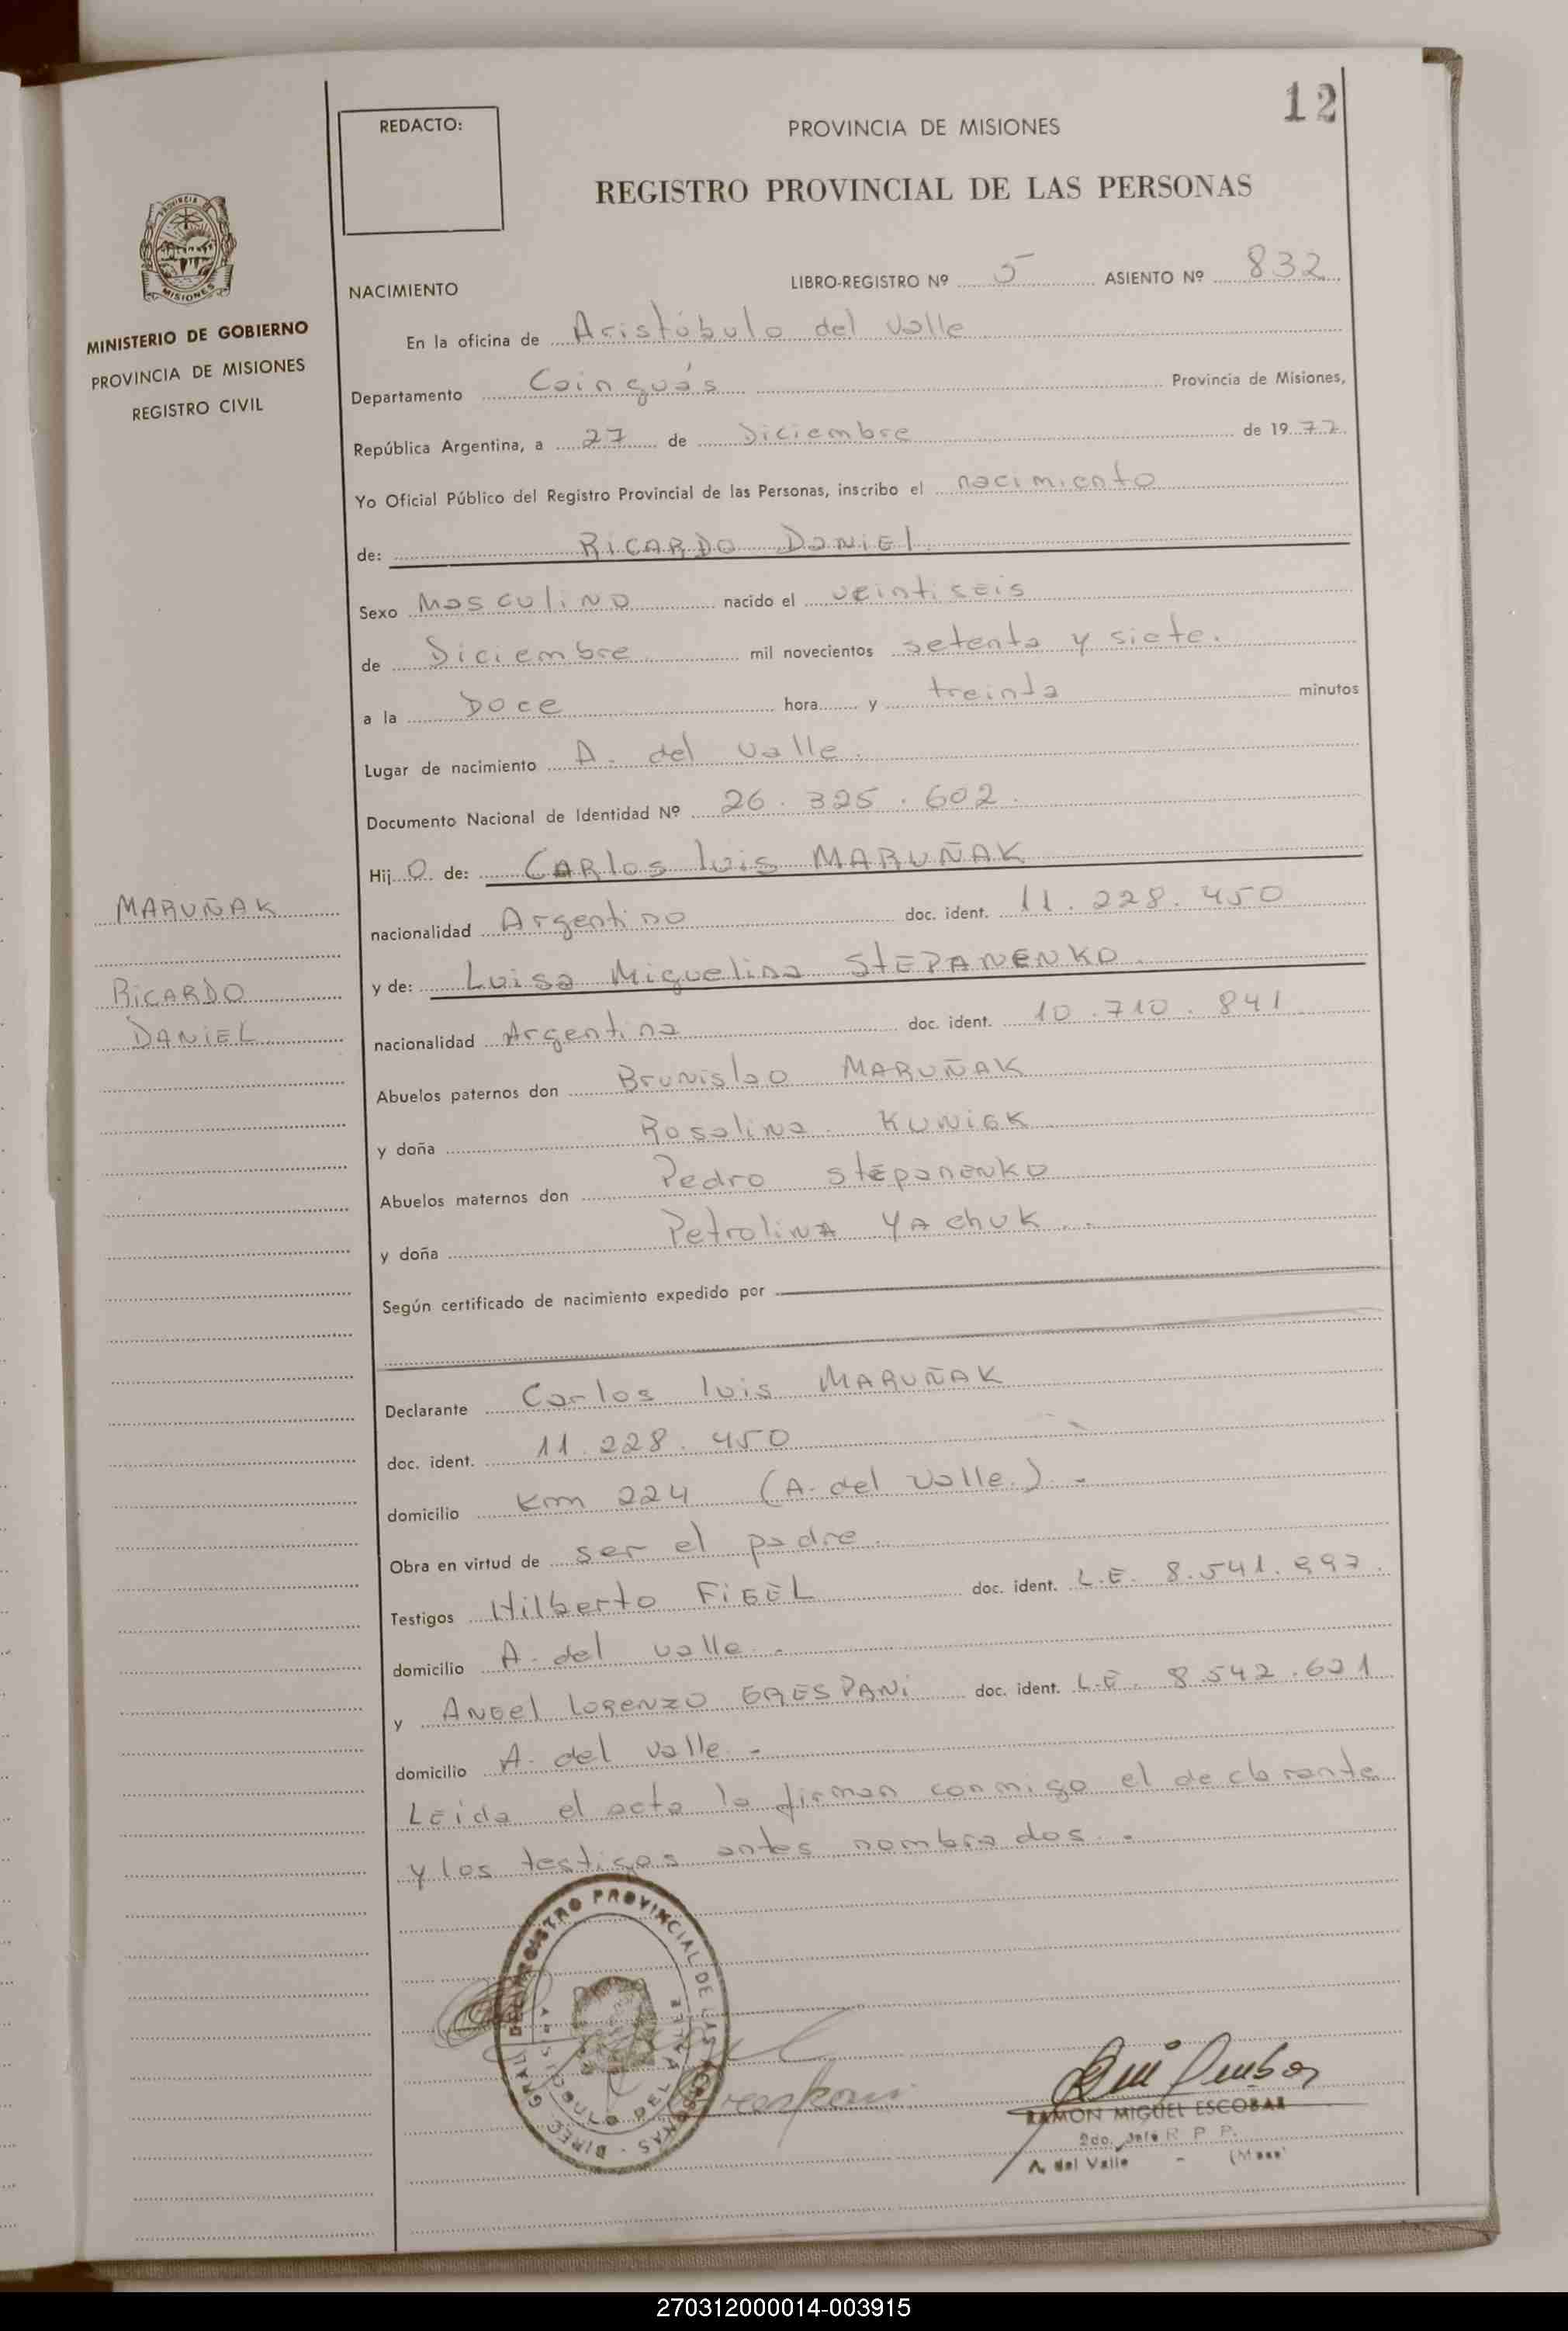 12
REDACTO:
PROVINCIA DE MISIONES
REGISTRO PROVINCIAL DE LAS PERSONAS
MINISTERIO DE GOBIERNO
PROVINCIA DE MISIONES
REGISTRO CIVIL
NACIMIENTO LIBRO-REGISTRO Nº 5 ASIENTO Nº 832
En la oficina de Aristóbulo del Valle
Departamento Cainguás Provincia de Misiones,
República Argentina, a 27 de Diciembre de 1977.
Yo Oficial Público del Registro Provincial de las Personas, inscribo el nacimiento
de: RICARDO DANIEL
Sexo Masculino nacido el veintiseis
de Diciembre mil novecientos setenta y siete.
a la Doce hora y treinta minutos
Lugar de nacimiento A. del Valle.
Documento Nacional de Identidad Nº 26.325.602.
Hijo de: Carlos Luis MARUÑAK
MARUÑAK
nacionalidad Argentino doc. ident. 11.228.450
y de: Luisa Miguelina STEPANENKO.
RICARDO
DANIEL
nacionalidad Argentina doc. ident. 10.710.841
Abuelos paternos don Brunislao MARUÑAK
y doña Rosalina KUNIGK
Abuelos maternos don Pedro Stepanenko
y doña Petrolina YAchuk..
Según certificado de nacimiento expedido por
Declarante Carlos Luis MARUÑAK
doc. ident. 11.228.450
domicilio Km 224 (A. del Valle.).-
Obra en virtud de ser el padre.
Testigos Hilberto FIGEL doc. ident. L.E. 8.541.997.
domicilio A. del Valle.-
y ANGel LORENZO GRESPANi doc. ident. L.E. 8.542.621
domicilio A. del Valle.-
Leida el acta la firman conmigo el declarante
y los testigos antes nombrados.-
DIREC. GRAL. DEL REGISTRO PROVINCIAL DE LAS PERSONAS
ARISTOBULO DEL VALLE
RAMON MIGUEL ESCOBAR
2do. Jefe R. P. P.
A. del Valle - (Mnes)
270312000014-003915